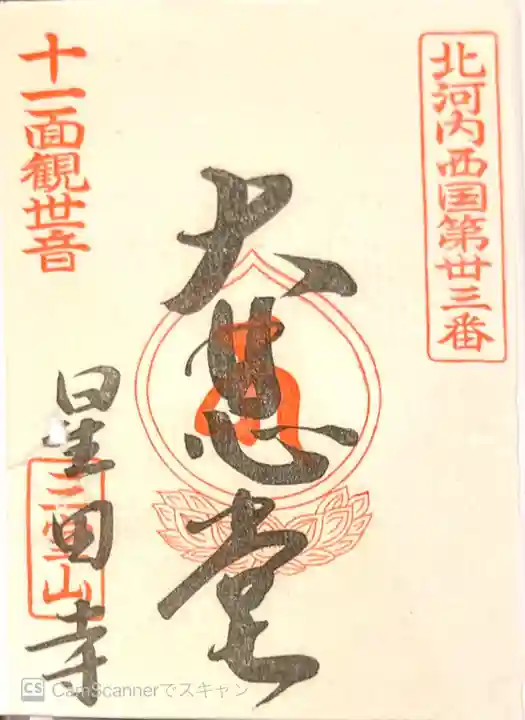 北河内西国第丗三番
大悲堂
十一面観世音
星田寺
三宝山
CS CamScannerでスキャン